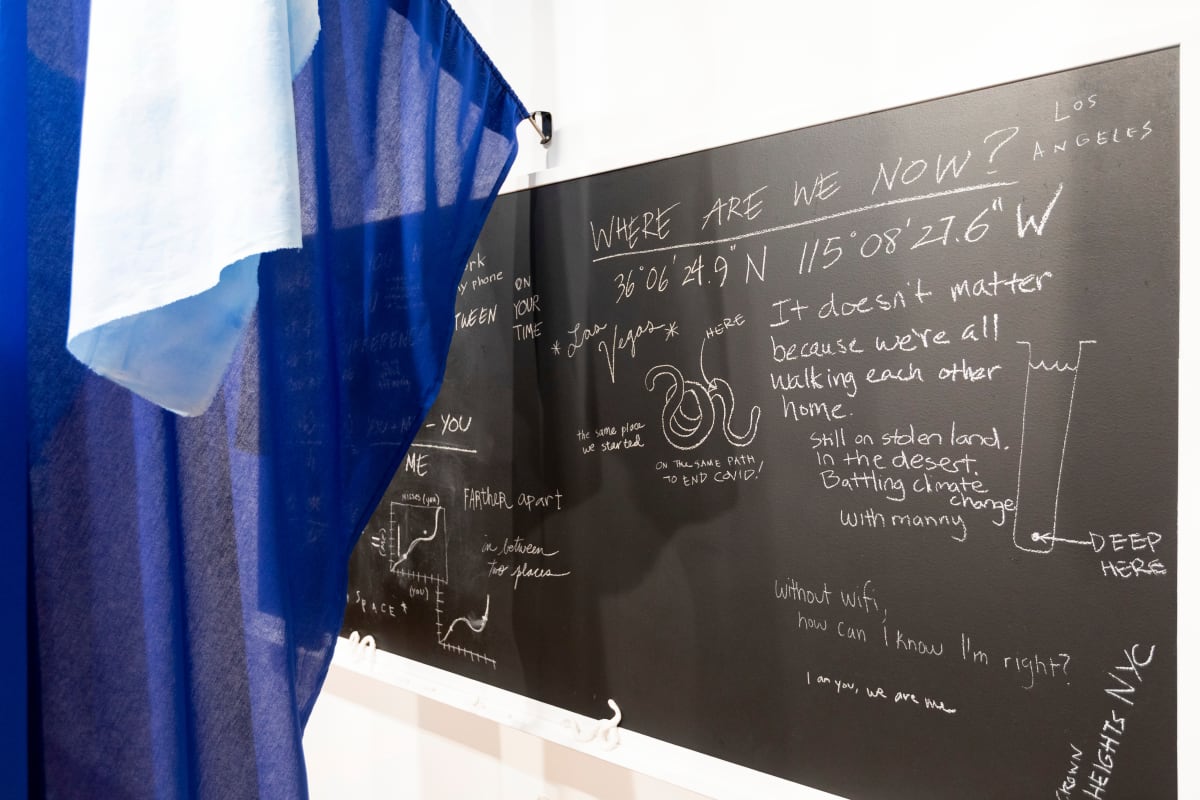 WHERE ARE WE NOW?
LOS
ANGELES
36°06'24.9"N 115°08'27.6"W
*Las
Vegas*
HERE
the same place
we started
ON THE SAME PATH
TO END COVID!
It doesn't matter
because we're all
walking each other
home.
Still on stolen land.
In the desert.
Battling climate
change
with manny
DEEP
HERE
without wifi,
how can I know I'm right?
I am you, we are me
HEIGHTS NYC
phone
ON
YOUR
TIME
- YOU
ME
(you)
FARTHER apart
in between
two places
(YOU)
SPACE*